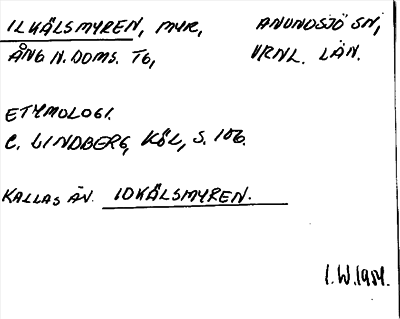 ILKÄLSMYREN, MYR, ANUNDSJÖ SN,
ÅNG N. DOMS. TG, VRNL. LÄN.
ETYMOLOGI.
C. LINDBERG, KÖL, S. 106.
KALLAS ÄV. IOKÄLSMYREN.
I.W. 1984.